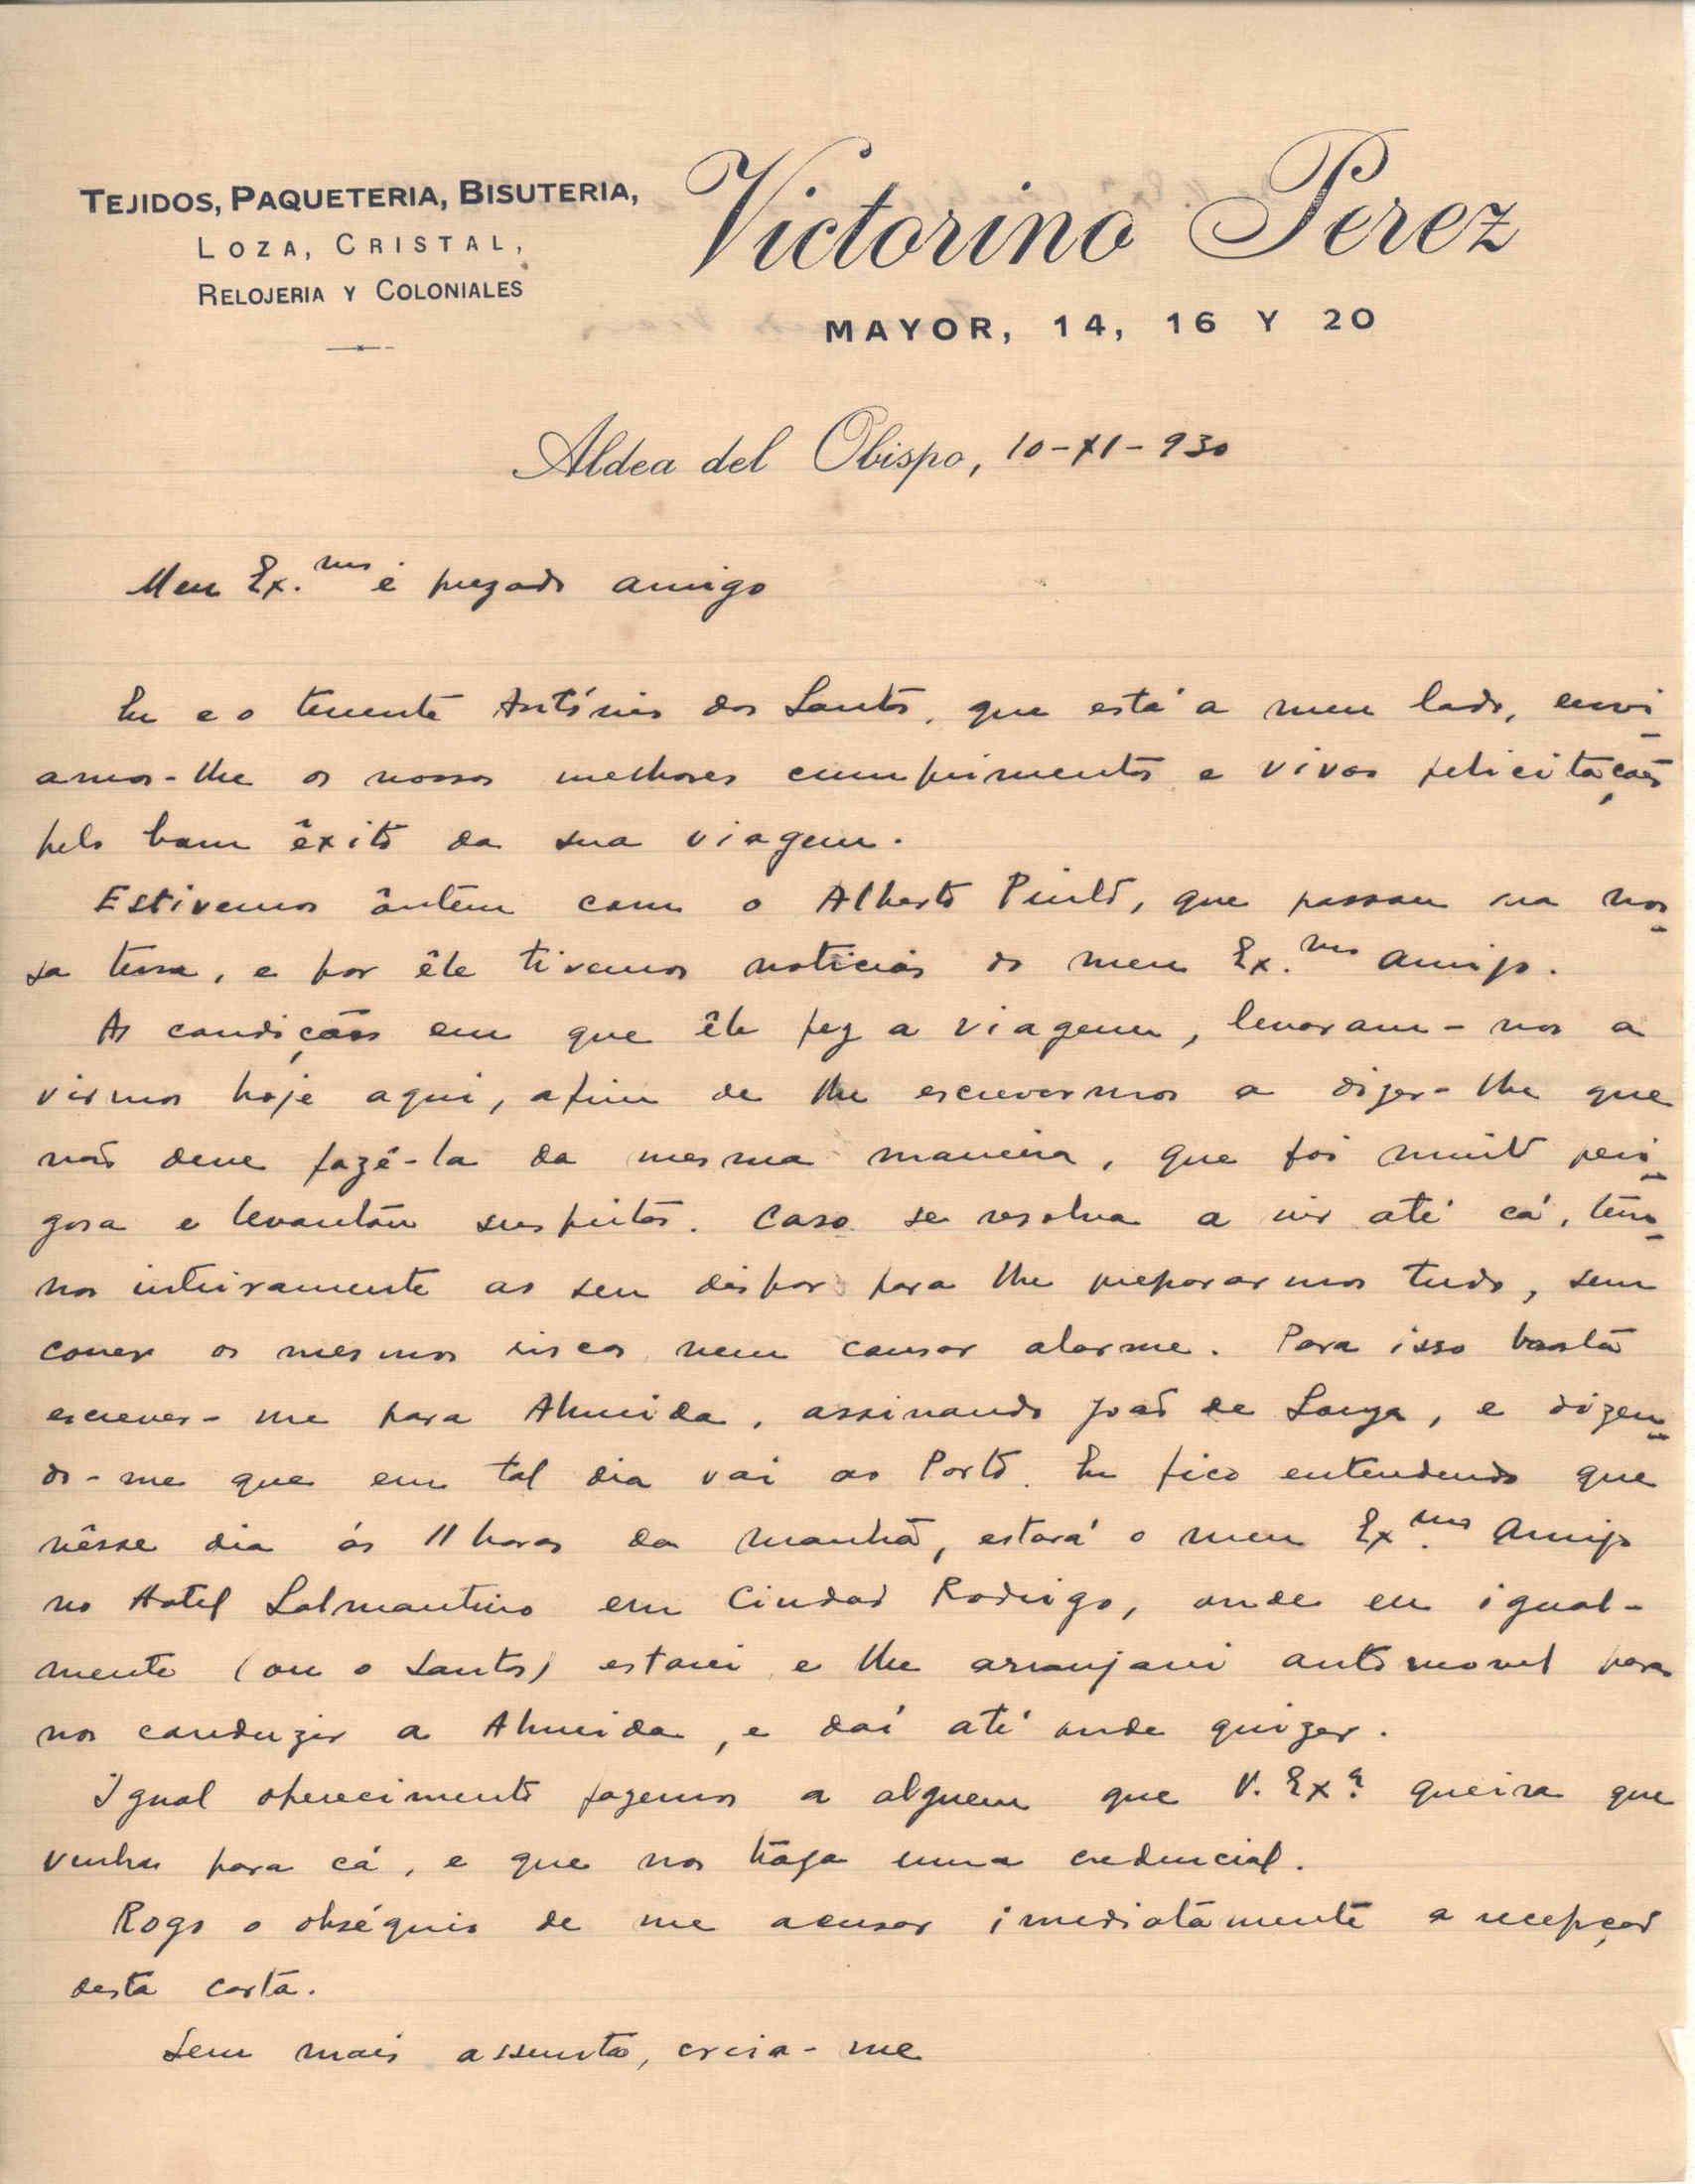 TEJIDOS, PAQUETERIA, BISUTERIA,
LOZA, CRISTAL,
RELOJERIA Y COLONIALES
Victorino Perez
MAYOR, 14, 16 Y 20
Aldea del Obispo, 10-XI-930
Meu Ex.mo e prezado amigo
Eu e o tenente António dos Santos, que está a meu lado, envi-
amos-lhe os nossos melhores cumprimentos e vivas felicitações
pelo bom êxito da sua viagem.
Estivemos ôntem com o Alberto Pinto, que passou na nos-
sa terra, e por êle tivemos noticias do meu Ex.mo amigo.
As condições em que êle fez a viagem, levaram-nos a
virmos hoje aqui, afim de lhe escrevermos a dizer-lhe que
não deve fazê-la da mesma maneira, que foi muito peri-
gosa e levantou suspeitas. Caso se resolva a vir até cá, tem-
nos inteiramente ao seu dispor para lhe prepararmos tudo, sem
correr os mesmos riscos nem causar alarme. Para isso basta
escrever-me para Almeida, assinando João de Souza, e dizen-
do-me que em tal dia vai ao Porto. Eu fico entendendo que
nêsse dia ás 11 horas da manhã, estará o meu Ex.mo Amigo
no Hotel Salmantino em Ciudad Rodrigo, onde eu igual-
mente (ou o Santos) estarei e lhe arranjarei automovel para
nos conduzir a Almeida, e daí até onde quizer.
Igual oferecimento fazemos a alguem que V. Ex.ª queira que
venha para cá, e que nos traga uma credencial.
Rogo o obséquio de me acusar imediatamente a recepção
desta carta.
Sem mais assunto, creia-me